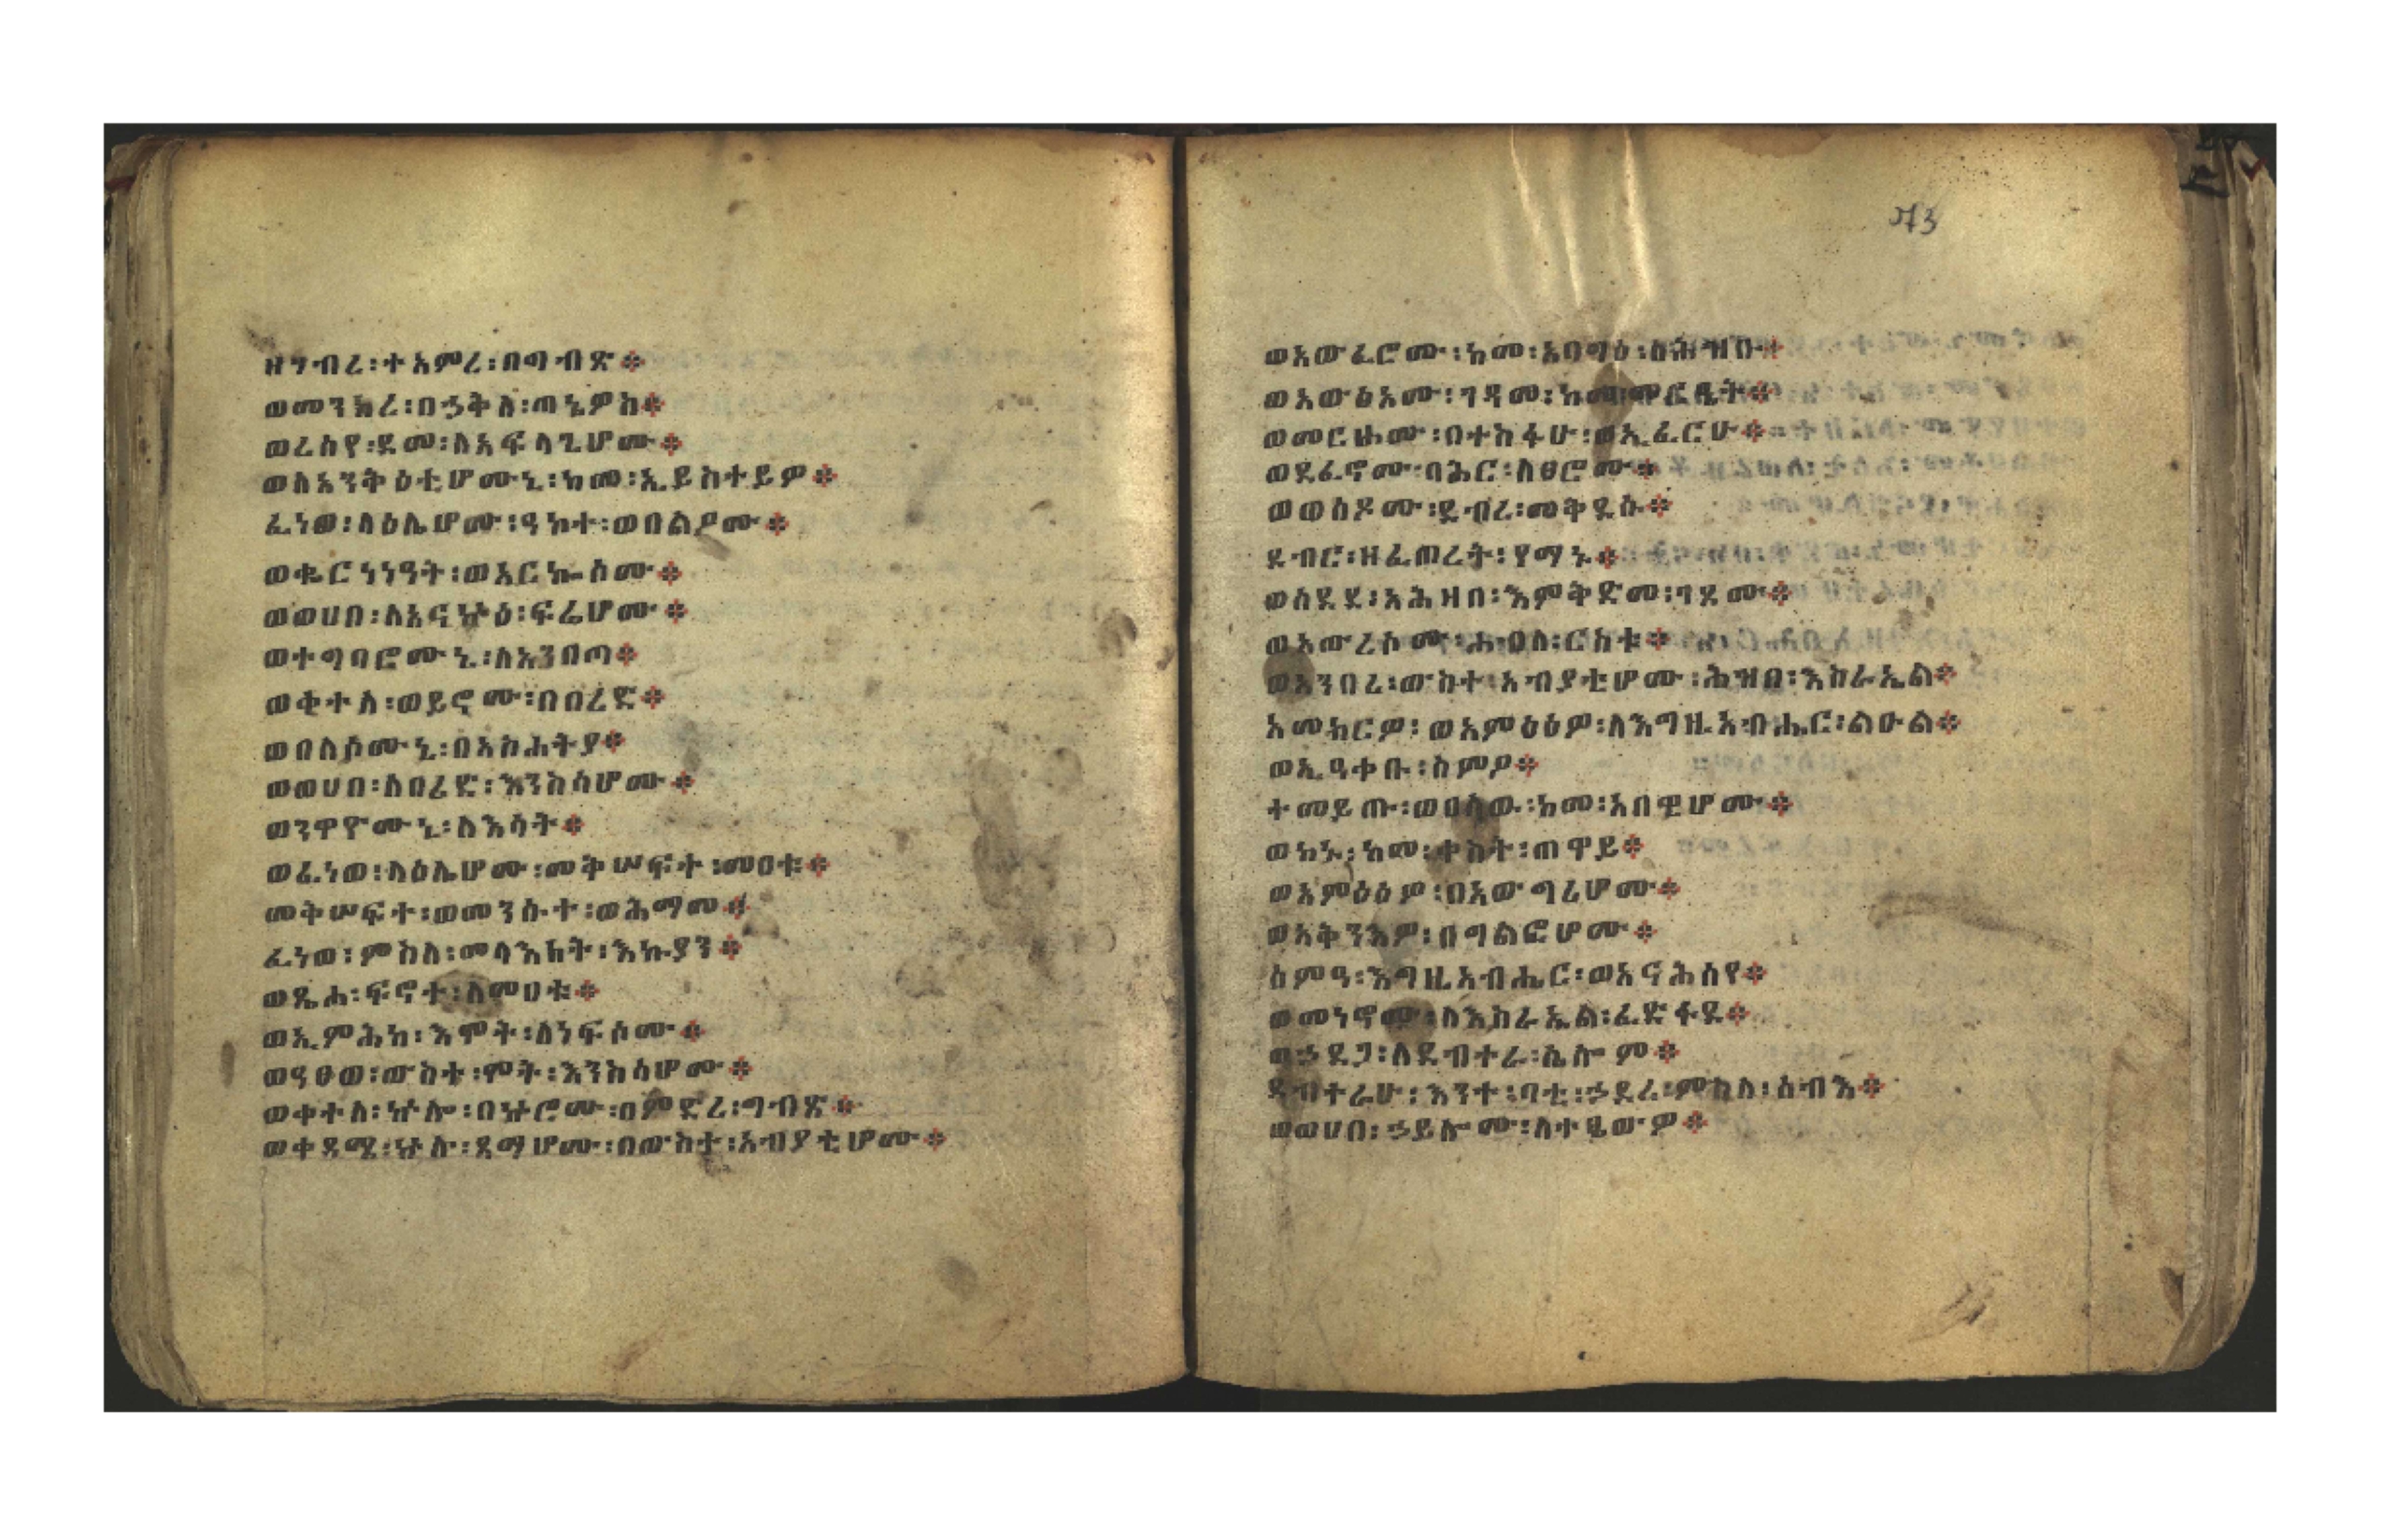 ዘገብረ፡ተአምረ፡በግብጽ።
ወመንክረ፡በኃቅለ፡ጠኔዎስ።
ወረሰየ፡ደመ፡ለአፍላጊሆሙ።
ወለአንቅዕቲሆሙኒ፡ከመ፡ኢይስተይዎ።
ፈነወ፡ላዕሌሆሙ፡ዓከተ፡ወበልዖሙ።
ወቈርነነዓት፡ወአርኰሰሙ።
ወወሀበ፡ለአናኵዕ፡ፍሬሆሙ።
ወተግባሮሙኒ፡ለአንበጣ።
ወቀተለ፡ወይኖሙ፡በበረድ።
ወበለሶሙኒ፡በአስሐትያ።
ወወሀበ፡ለበረድ፡እንስሳሆሙ።
ወንዋዮሙኒ፡ለእሳት።
ወፈነወ፡ላዕሌሆሙ፡መቅሠፍተ፡መዐቱ።
መቅሠፍተ፡ወመንሱተ፡ወሕማመ።
ፈነወ፡ምስለ፡መላእክት፡እኩያን።
ወጼሐ፡ፍኖተ፡ለመዐቱ።
ወኢምሕከ፡እሞት፡ለነፍሶሙ።
ወዓፀወ፡ውስተ፡ሞት፡እንስሳሆሙ።
ወቀተለ፡ኵሎ፡በኵሮሙ፡በምድረ፡ግብጽ።
ወቀዳሜ፡ኵሉ፡ጻማሆሙ፡በውስተ፡አብያቲሆሙ።
73
ወአውፈሮሙ፡ከመ፡አባግዕ፡ለሕዝቡ።
ወአውፅአሙ፡ገዳመ፡ከመ፡መርዔት።
ወመርሖሙ፡በተስፋሁ፡ወኢፈርሁ።
ወደፈኖሙ፡ባሕር፡ለፀሮሙ።
ወወሰዶሙ፡ደብረ፡መቅደሱ።
ደብር፡ዘፈጠረት፡የማኑ።
ወሰደደ፡አሕዛበ፡እምቅድመ፡ገጾሙ።
ወአውረሶሙ፡ሐብለ፡ርስቱ።
ወአንበረ፡ውስተ፡አብያቲሆሙ፡ሕዝበ፡እስራኤል።
አመከርዎ፡ወአምዕዕዎ፡ለእግዚአብሔር፡ልዑል።
ወኢዓቀቡ፡ስምዖ።
ተመይጡ፡ወዐለዉ፡ከመ፡አበዊሆሙ።
ወኮኑ፡ከመ፡ቀስት፡ጠዋይ።
ወአምዕዕዎ፡በአውግሪሆሙ።
ወአቅንእዎ፡በግልፎሆሙ።
ሰምዓ፡እግዚአብሔር፡ወአናሕሰየ።
ወመነኖሙ፡ለእስራኤል፡ፈድፋደ።
ወኃደጋ፡ለደብተራ፡ሴሎም።
ደብተራሁ፡እንተ፡ባቲ፡ኃደረ፡ምስለ፡ሰብእ።
ወወሀበ፡ኃይሎሙ፡ለተፄውዎ።